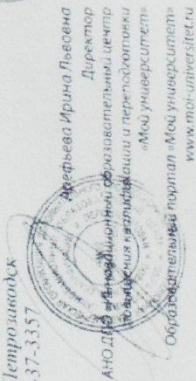 Петрозаводск
37-3357
Арефьева Ирина Львовна
Директор
АНОДПО «Инновационный образовательный центр
повышения квалификации и переподготовки
«Мой университет»
Образовательный портал «Мой университет»
www.moi-universitet.ru